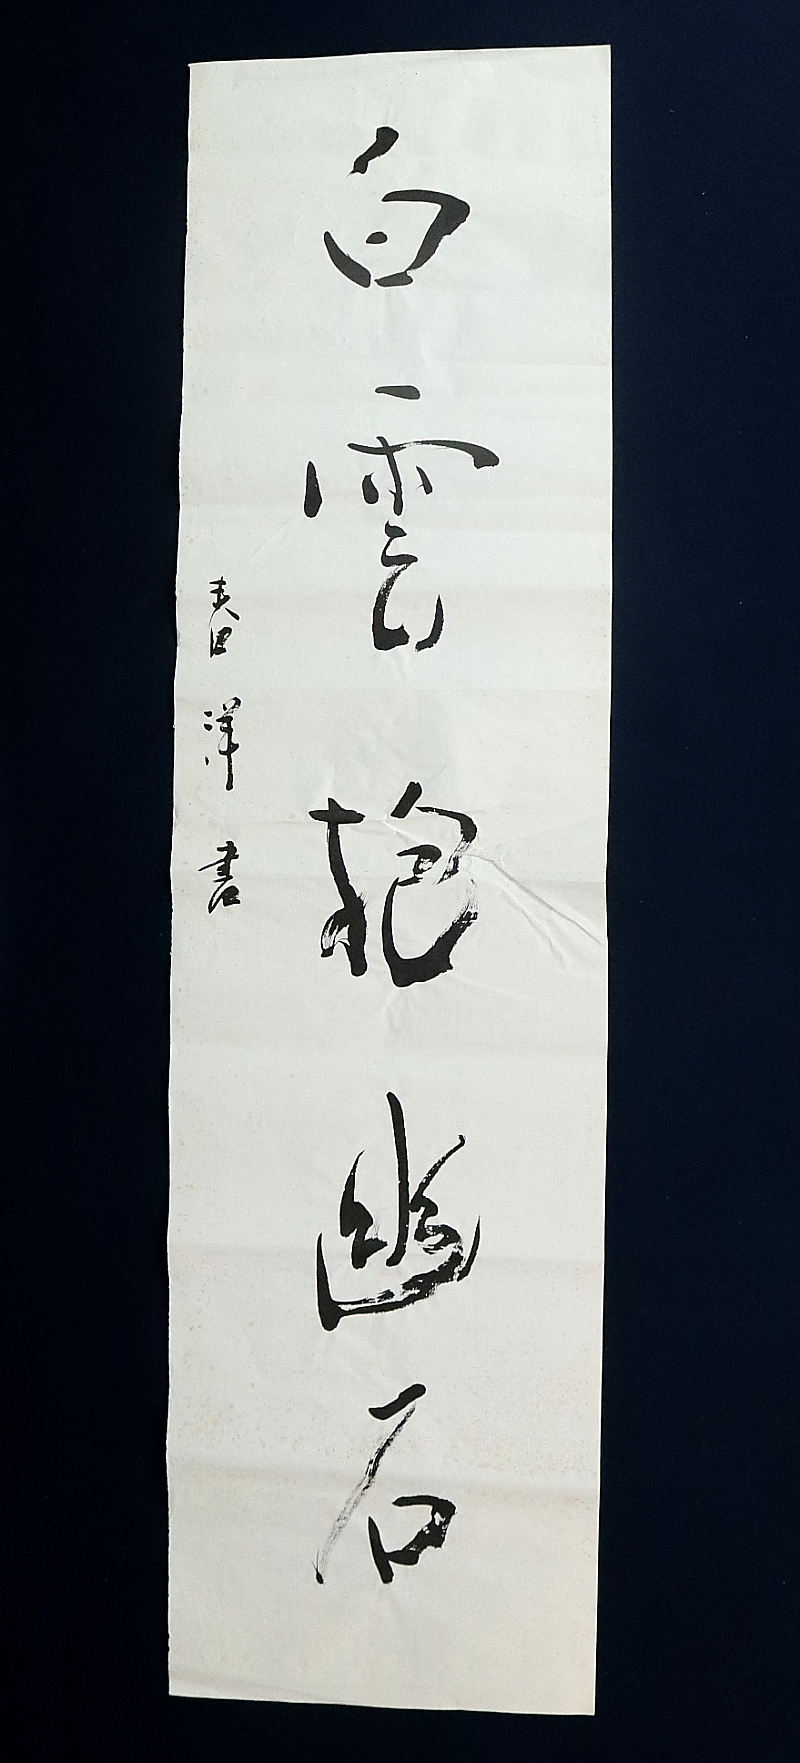 白雲抱幽石
春日 洋 書